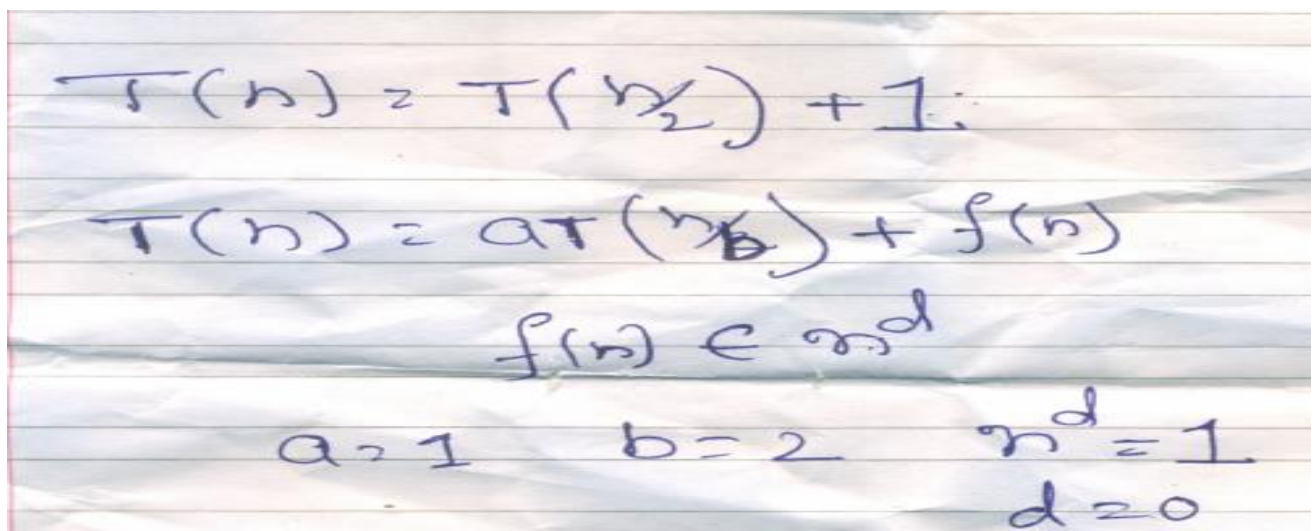 T(n) = T(n/2) + 1
T(n) = aT(n/b) + f(n)
f(n) ∈ n^d
a = 1 b = 2 n^d = 1
d = 0